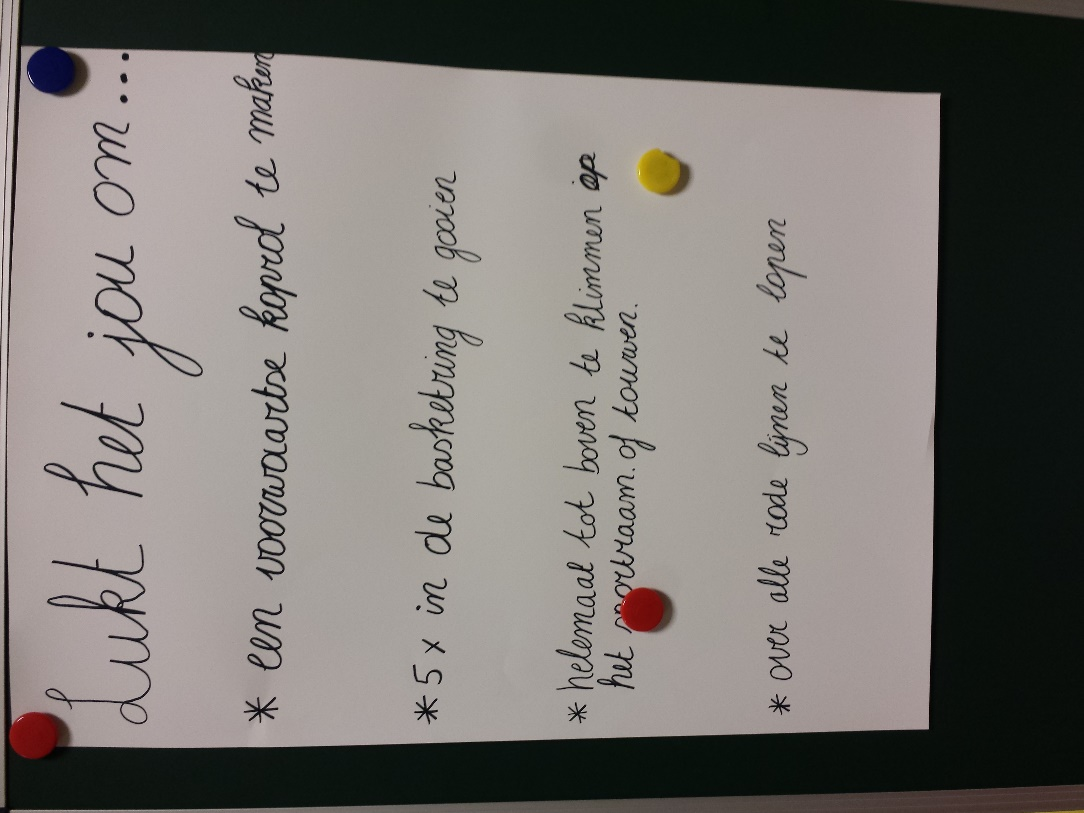 Lukt het jou om....
* een voorwaartse koprol te maken
* 5 x in de basketring te gooien
* helemaal tot boven te klimmen op
het sportraam of touwen.
* over alle rode lijnen te lopen